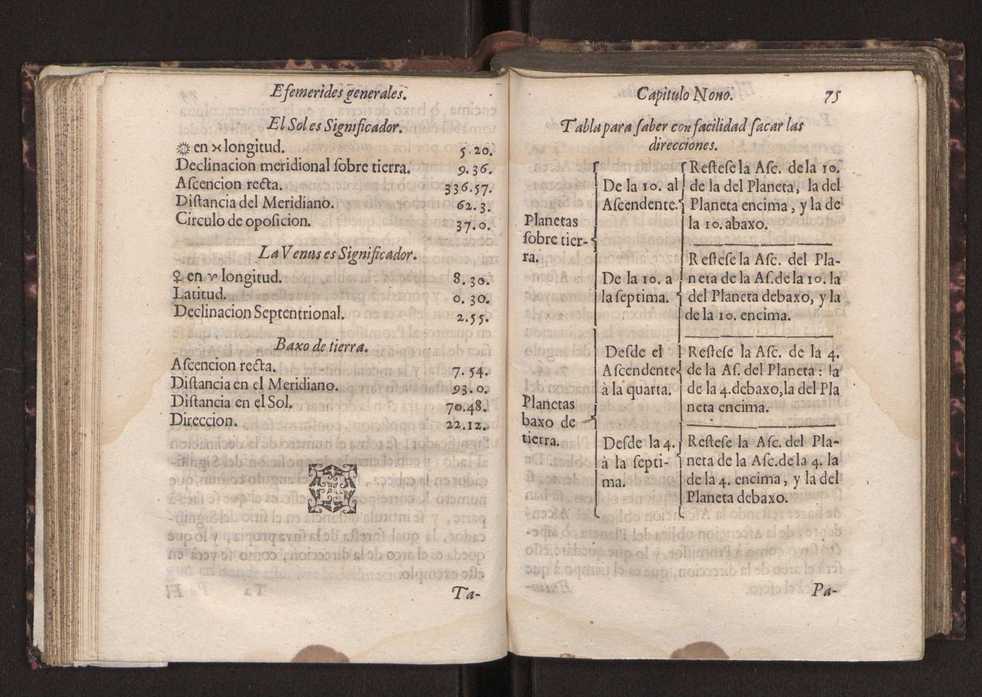 Efemerides generales.
El Sol es Significador.
☼ en ♓ longitud. 5.20.
Declinacion meridional ſobre tierra. 9.36.
Aſcencion recta. 336.57.
Diſtancia del Meridiano. 62.3.
Circulo de opoſicion. 37.0.
La Venus es Significador.
♀ en ♈ longitud. 8.30.
Latitud. 0.30.
Declinacion Septentrional. 2.55.
Baxo de tierra.
Aſcencion recta. 7.54.
Diſtancia en el Meridiano. 93.0.
Diſtancia en el Sol. 70.48.
Direccion. 22.12.
Ta-
Capitulo Nono. 75
Tabla para ſaber con facilidad ſacar las
direcciones.
Planetas
ſobre tier-
ra.
De la 10. al
Aſcendente.
Reſteſe la Aſc. de la 10.
de la del Planeta, la del
Planeta encima, y la de
la 10. abaxo.
De la 10. a
la ſeptima.
Reſteſe la Aſc. del Pla-
neta de la Aſ. de la 10. la
del Planeta debaxo, y la
de la 10. encima.
Planetas
baxo de
tierra.
Deſde el
Aſcendente
à la quarta.
Reſteſe la Aſc. de la 4.
de la Aſ. del Planeta: la
de la 4. debaxo, la del Pla
neta encima.
Deſde la 4.
à la ſepti-
ma.
Reſteſe la Aſc. del Pla-
neta de la Aſc. de la 4. la
de la 4. encima, y la del
Planeta debaxo.
Pa-